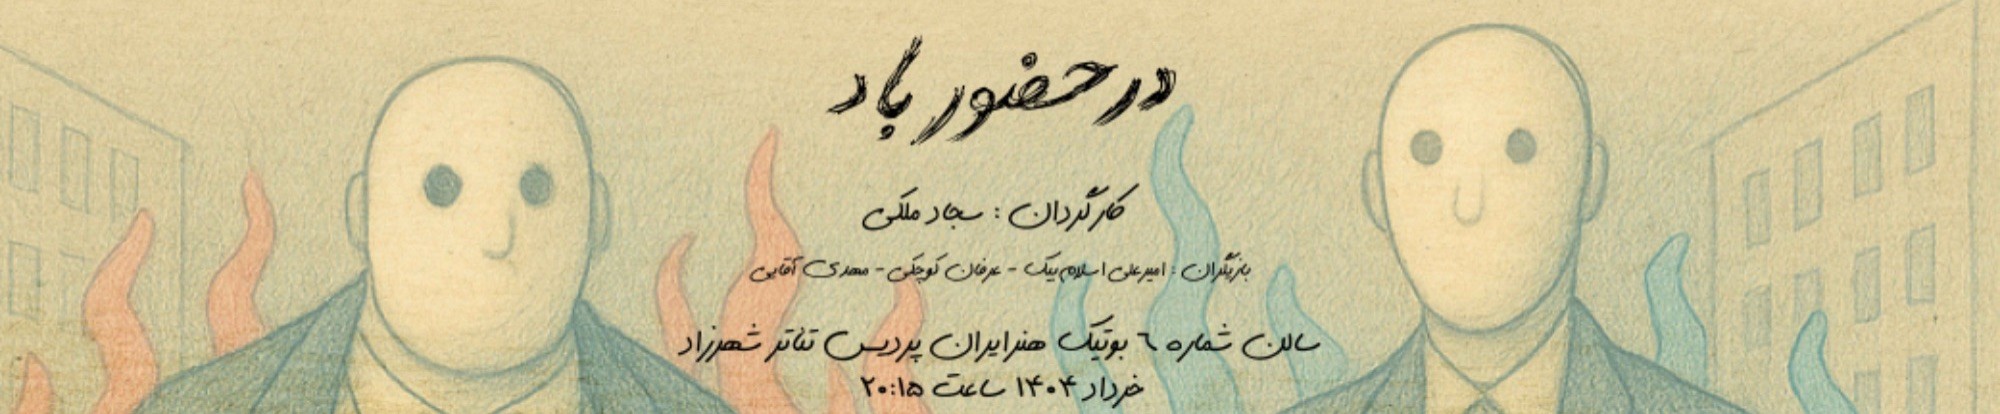 در حضور باد
کارگردان : سجاد ملکی
بازیگران : امیرعلی اسلام بیک - عرفان کوچکی - مهدی آقایی
سالن شماره ۶ بوتیک هنر ایران پردیس تئاتر شهرزاد
خرداد ۱۴۰۴ ساعت ۲۰:۱۵